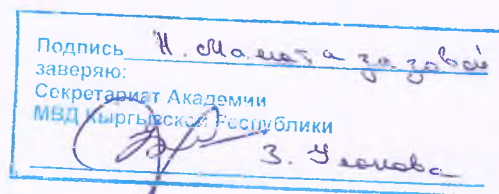 Подпись Н.
заверяю:
Секретариат Академии
МВД Кыргызской Республики
З.